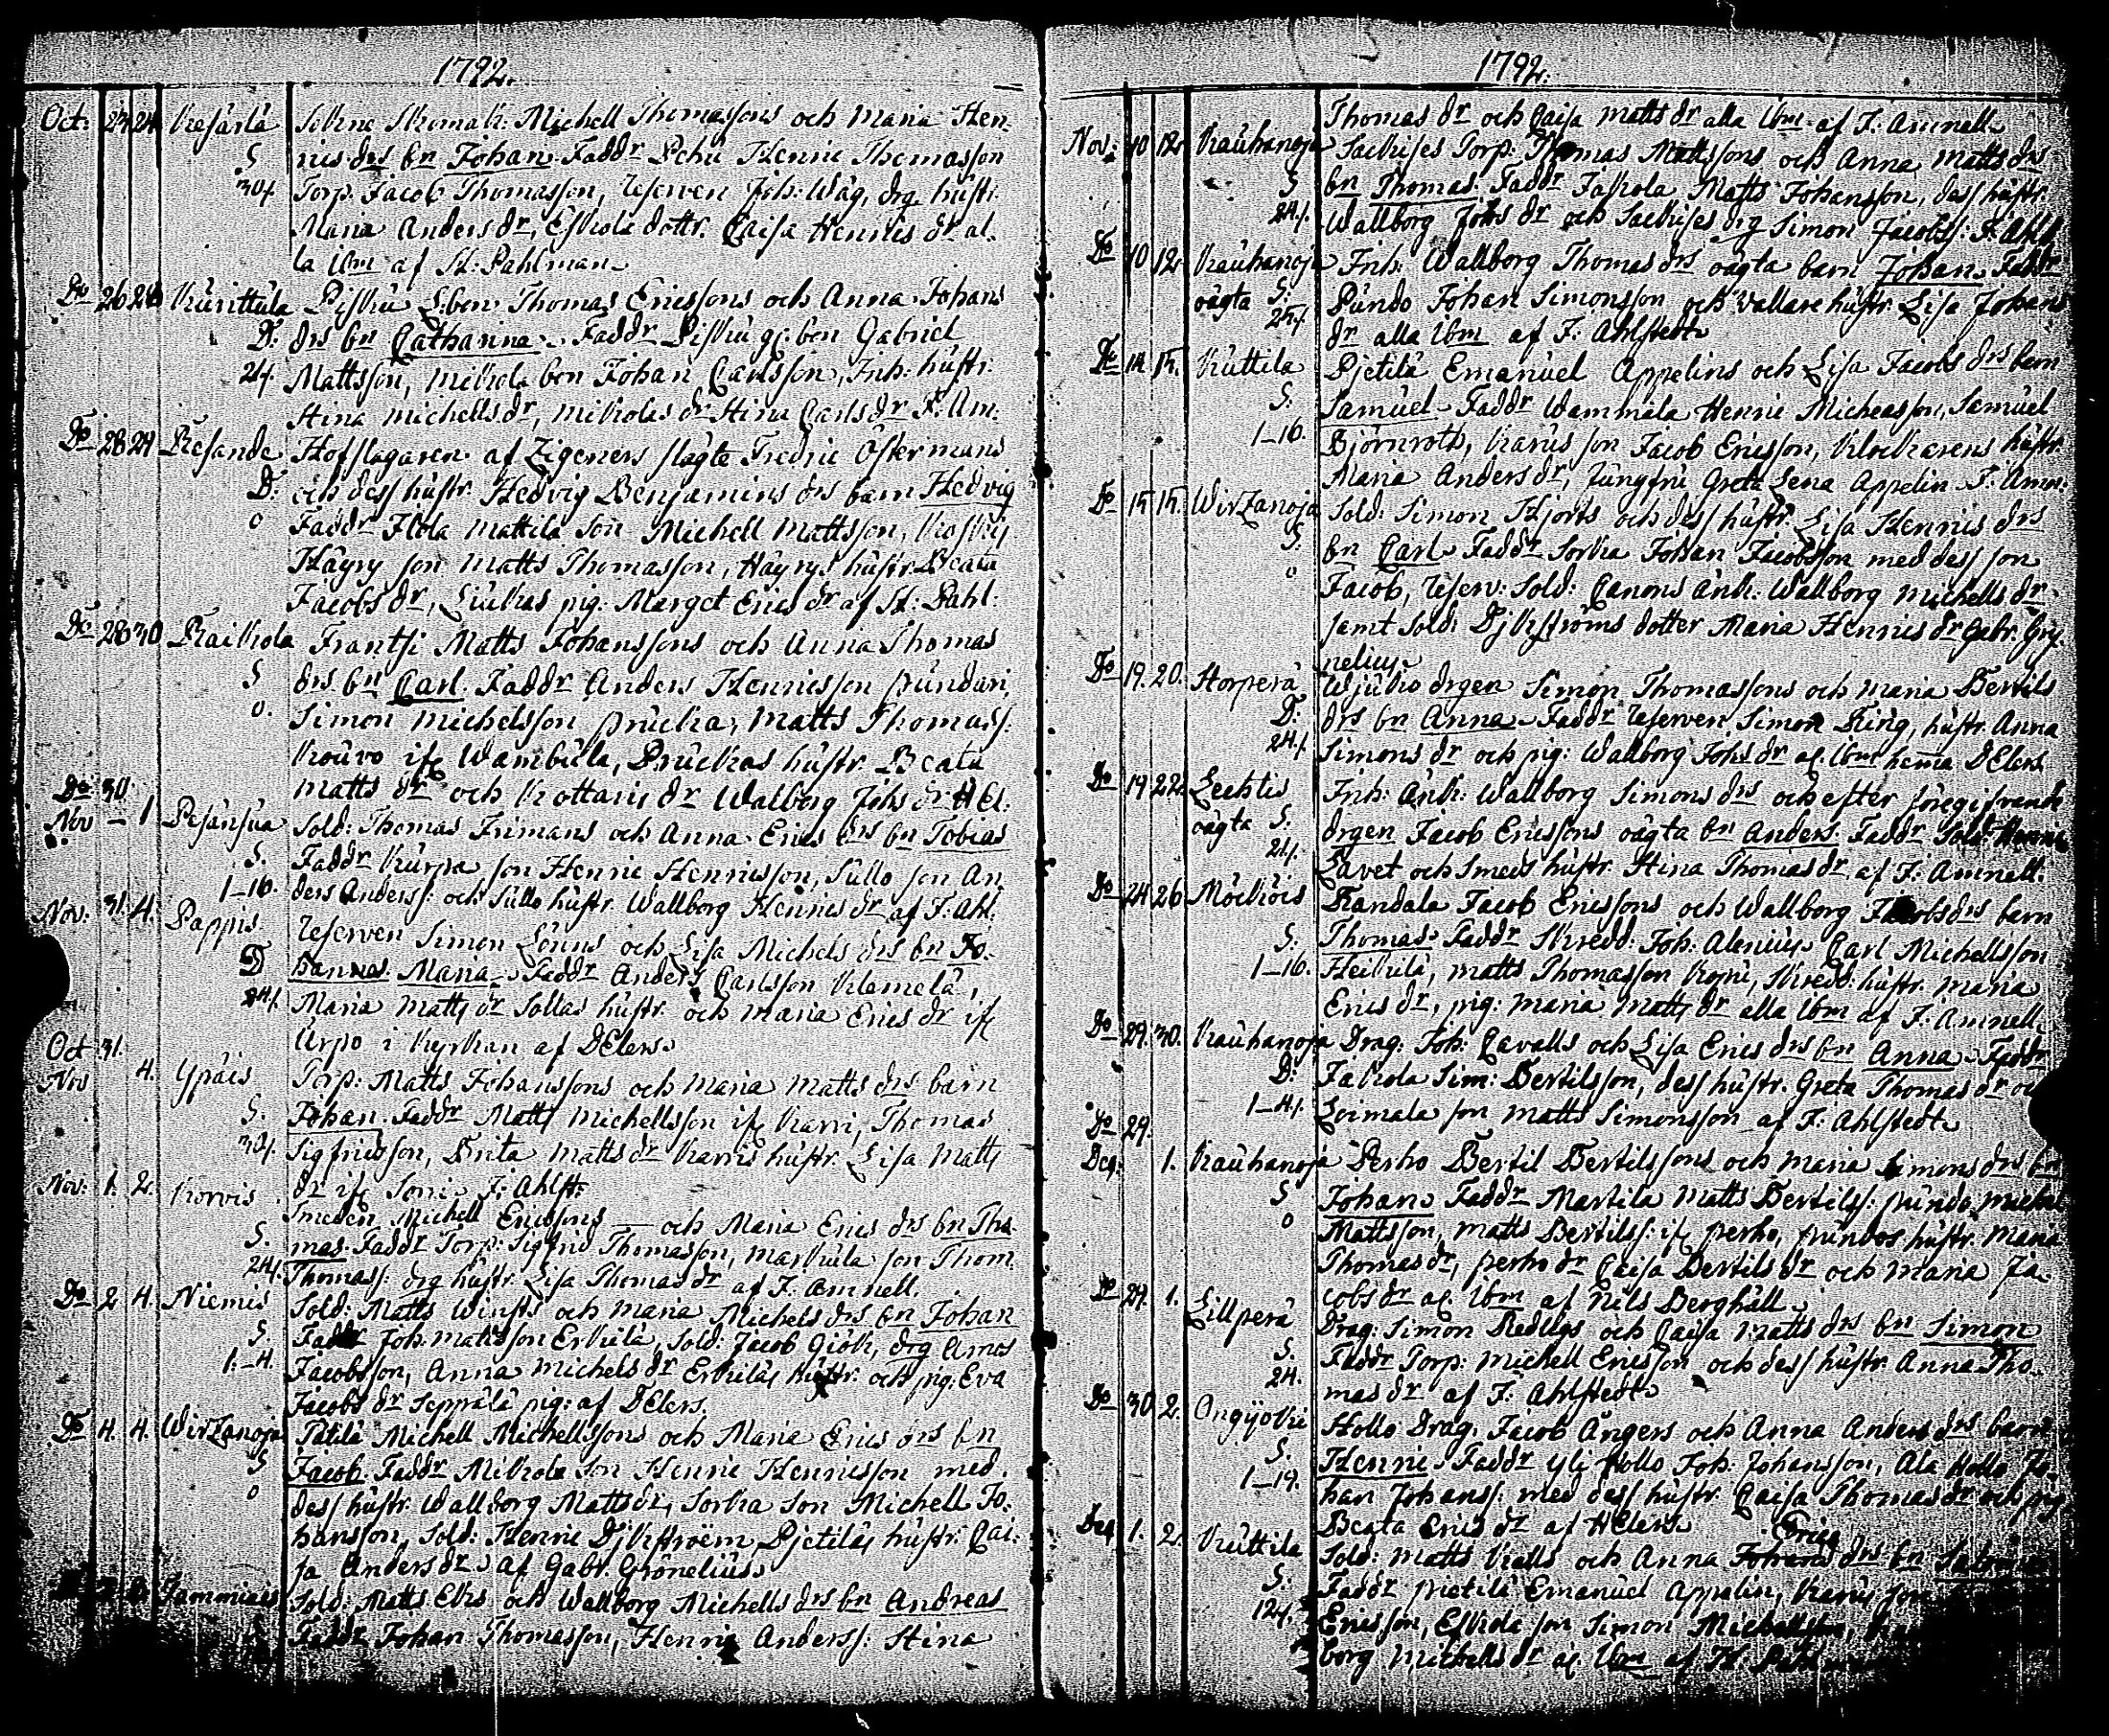 1792.
Oct: 23 24 Kesärlä Michell Thomassons och Maria Hen-
S nis drs bn Johan. Faddr Pehu Henric Thomasson
304. Torp. Jacob Thomasson, Reserven Joh: Wåg, drg. hustr.
Maria Anders dr, Eskola dottr. Caisa Henrics dr al-
la ibm af H: Pahlman.
Do 26 28 Kurittula Pispu Thomas Ericssons och Anna Johans
D: drs bn Catharina. Faddr Gabriel
24. Mattsson, Mikola bon Johan Carlsson, Inh: hustr.
Stina Michells dr, Mikolas dr Stina Carls dr F. Am.
Do 28 29 Hofslagaren af Zigeners slägte Fredric Östermans
D: och dess hustr. Hedvig Benjamins drs barn Hedvig
0 Faddr Flola Mattila son Michell Mattsson,
Häyry son Matts Thomasson, Häyrys hustr. Beata
Jacobs dr, pig: Marget Erics dr af H: Pahl:
Do 28 30 Raikola Frantsi Matts Johanssons och Anna Thomas
S drs bn Carl. Faddr Anders Henricsson pundari,
0. Simon Michelsson Matts Thomass:
Kouvo ifr Wambula, hustr. Beata
Matts dr och Kottaris dr Walborg Johs dr H El:
Do 30
Nov 1 Pesänsua Sold: Thomas Frimans och Anna Erics drs bn Tobias
S. Faddr Kurpa son Henric Henricsson, Sullo son An
1-16. ders Anderss: och Sullo hustr. Wallborg Henrics dr af F: Ahl:
Nov: 31. 4. Pappis Reserven Simon Lönns och Lisa Michels drs bn Jo-
D hannas Maria. Faddr Anders Carlsson Klemelä,
24. Maria Matts dr Sollas hustr. och Maria Erics dr ifr
Arpo i Kyrkan af D Elers.
Oct 31.
Nov 4. Ypäis Torp: Matts Johanssons och Maria Matts drs barn
S. Johan. Faddr Matts Michellsson ifr Karri, Thomas
304. Sigfridsson, Brita Matts dr Karris hustr. Lisa Matts
dr ifr Sorri F: Ahlst:
Nov: 1. 2. Korvis Smeden Michell Ericssons och Maria Erics drs bn Tho
S. mas. Faddr Torp: Sigfrid Thomasson, Markula son Thom.
24. Thomass: drg hustr. Lisa Thomas dr af F. Amnell.
Do 2 4. Niemis Sold: Matts Winsts och Maria Michels drs bn Johan
S. Faddr Joh. Mattsson Erkilä, Sold: Jacob Giök, drg Amos
1.-4. Jacobsson, Anna Michels dr Erkiläs hustr. och pig: Eva
Jacobs dr Seppälä pig: af D Elers.
Do 4. 4. Wirzanoja Pätilä Michell Michellssons och Maria Erics drs bn
S Jacob. Faddr Mikola son Henric Henricsson med
0 dess hustr. Wallborg Matts dr, Sorkka son Michell Jo-
hansson, Sold: Henric Djkström Pjetiläs hustr. Cai-
sa Anders dr af Gabr. Grönelius.
Tammiais Sold: Matts Eks och Wallborg Michells drs bn Andreas
Faddr Johan Thomasson, Henric Anderss: Stina
1792.
Thomas dr och Caisa Matts dr alla ibm af F. Amnell
Nov: 10 12 Kauhanoja Torp: Thomas Mattssons och Anna Matts drs
S bn Thomas. Faddr Jakola Matts Johansson, dess hustr.
24. Wallborg Johs dr och drg Simon Jacobss: F: Ahl
Do 10 12. Kauhanoja Inh: Wallborg Thomas drs oägta barn Johan. Faddr
oägta S: Pundo Johan Simonsson och hustr. Lisa Johans
24. dr alla ibm af F: Ahlstedt
Do 14 15. Kuttila Pjetilä Emanuel Appelins och Lisa Jacobs drs barn
S: Samuel. Faddr Wammala Henric Micheasson, Samuel
1-16. Björnroth, Karus son Jacob Ericsson, Klockarens hustr.
Maria Anders dr, Jungfru Greta Lena Appelin. F. Amn.
Do 15 15. Wirzanoja Sold: Simon Hjorts och dess hustr. Lisa Henrics drs
S: bn Carl. Faddr Sorkka Johan Jacobsson med dess son
0 Jacob, Reserv: Sold: Canons änk: Wallborg Michells dr
samt Sold: Djkströms dotter Maria Henrics dr Gabr. Grö
nelius.
Do 19. 20. Horperä drgen Simon Thomassons och Maria Bertils
D: drs bn Anna. Faddr Reserven Simon Ring, hustr. Anna
24. Simons dr och pig: Wallborg Johs dr al. ibm hema D Elers
Do 19 22. Lechtis Inh: änk: Wallborg Simons drs och efter föregifvande
oägta S: drgen Jacob Ericssons oägta bn Anders. Faddr Sold: Henric
24. Lavet och Smeds hustr. Stina Thomas dr af F: Amnell.
Do 24 26 Möckiöis Randala Jacob Ericssons och Wallborg Jacobs drs barn
S: Thomas. Faddr Skredd: Joh: Alenius, Carl Michellsson
1-16. Heikilä, Matts Thomasson Skredd: hustr. Maria
Erics dr, pig: Maria Matts dr alla ibm af F: Amnell
Do 29. 30. Kauhanoja Drag: Joh: Cavalls och Lisa Erics drs bn Anna. Faddr
D: Jakola Sim: Bertilsson, dess hustr. Greta Thomas dr
1-4. Loimala son Matts Simonsson af F: Ahlstedt
Do 29.
Dec: 1. Kauhanoja Perho Bertil Bertilssons och Maria Simons drs bn
S Johan. Faddr Martila Matts Bertilss:
0 Mattsson, Matts Bertilss: ifr Perho, Pundos hustr. Maria
Thomas dr, Perho dr Caisa Bertils dr och Maria Ja-
cobs dr al. ibm af Nils Berghäll.
Do 29. 1. Lillperä Drag: Simon Redligs och Caisa Matts drs bn Simon
S. Faddr Torp: Michell Ericsson och dess hustr. Anna Tho-
24. mas dr af F: Ahlstedt
Do 30 2. Ongijoki Hollo Drag. Jacob Ångers och Anna Anders drs barn
S. Henric. Faddr Yli Hollo Joh: Johansson, Ala Hollo Jo-
1-19. han Johanss: med dess hustr. Caisa Thomas dr och pig
Beata Erics dr af H Elers
Dec 1. 2. Kuttila Sold: Matts Kalls och Anna Erics drs bn
S. Faddr Pietilä Emanuel Appelin, Karus son
124. Ericsson, Eskola son Simon
borg Michells dr al. ibm af H